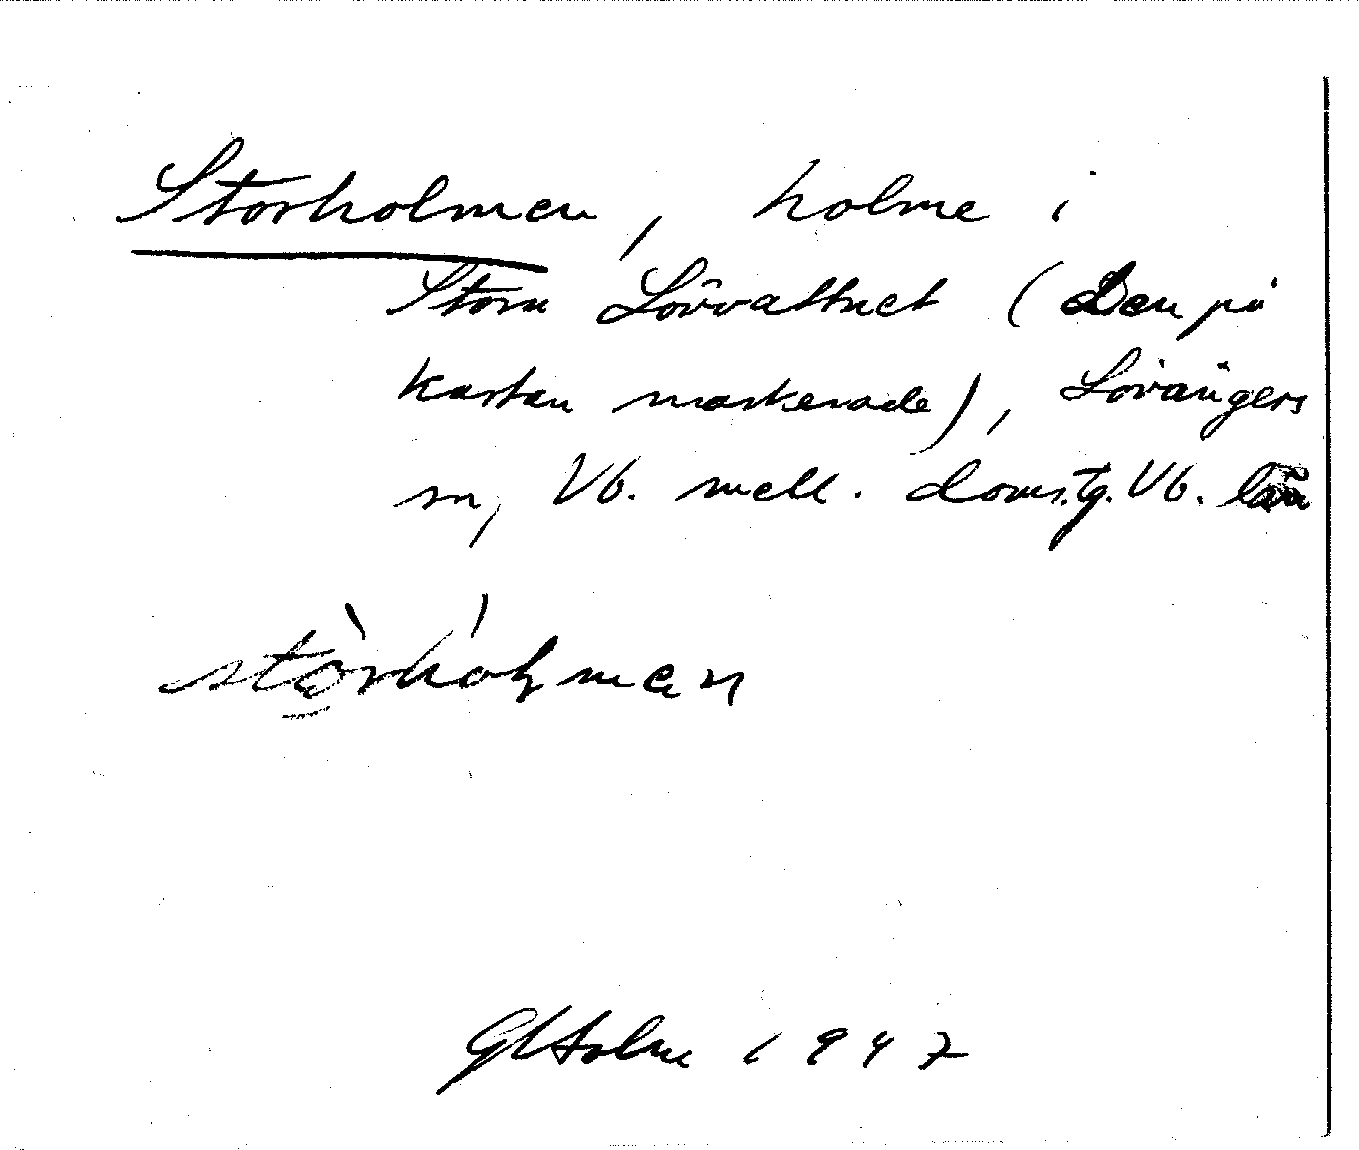 Storholmen, holme i
Stora Lövvattnet (Den på
kartan markerade), Lövångers
sn, Vb. mell. doms.tg. Vb. län
stòrhólman
G Holm 1947